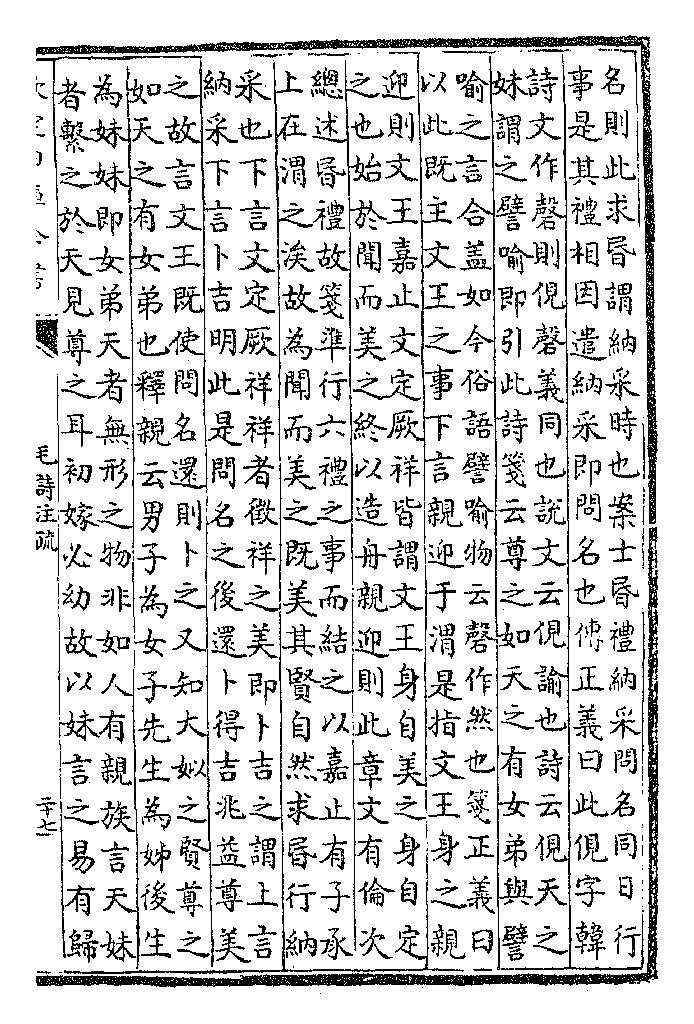 名則此求昏謂納采時也案士昏禮納采問名同日行
事是其禮相因遣納采即問名也傳正義曰此俔字韓
詩文作磬則俔磬義同也說文云俔諭也詩云俔天之
妹謂之譬喻即引此詩箋云尊之如天之有女弟與譬
喻之言合蓋如今俗語譬喻物云磬作然也箋正義曰
以此既主文王之事下言親迎于渭是指文王身之親
迎則文王嘉止文定厥祥皆謂文王身自美之身自定
之也始於聞而美之終以造舟親迎則此章文有倫次
總述昏禮故箋準行六禮之事而結之以嘉止有子承
上在渭之涘故為聞而美之既美其賢自然求昏行納
采也下言文定厥祥祥者徵祥之美即卜吉之謂上言
納采下言卜吉明此是問名之後還卜得吉兆益尊美
之故言文王既使問名還則卜之又知大姒之賢尊之
如天之有女弟也釋親云男子為女子先生為姊後生
為妹妹即女弟天者無形之物非如人有親族言天妹
者繫之於天見尊之耳初嫁必幼故以妹言之易有歸
欽定四庫全書
毛詩注疏
二十七